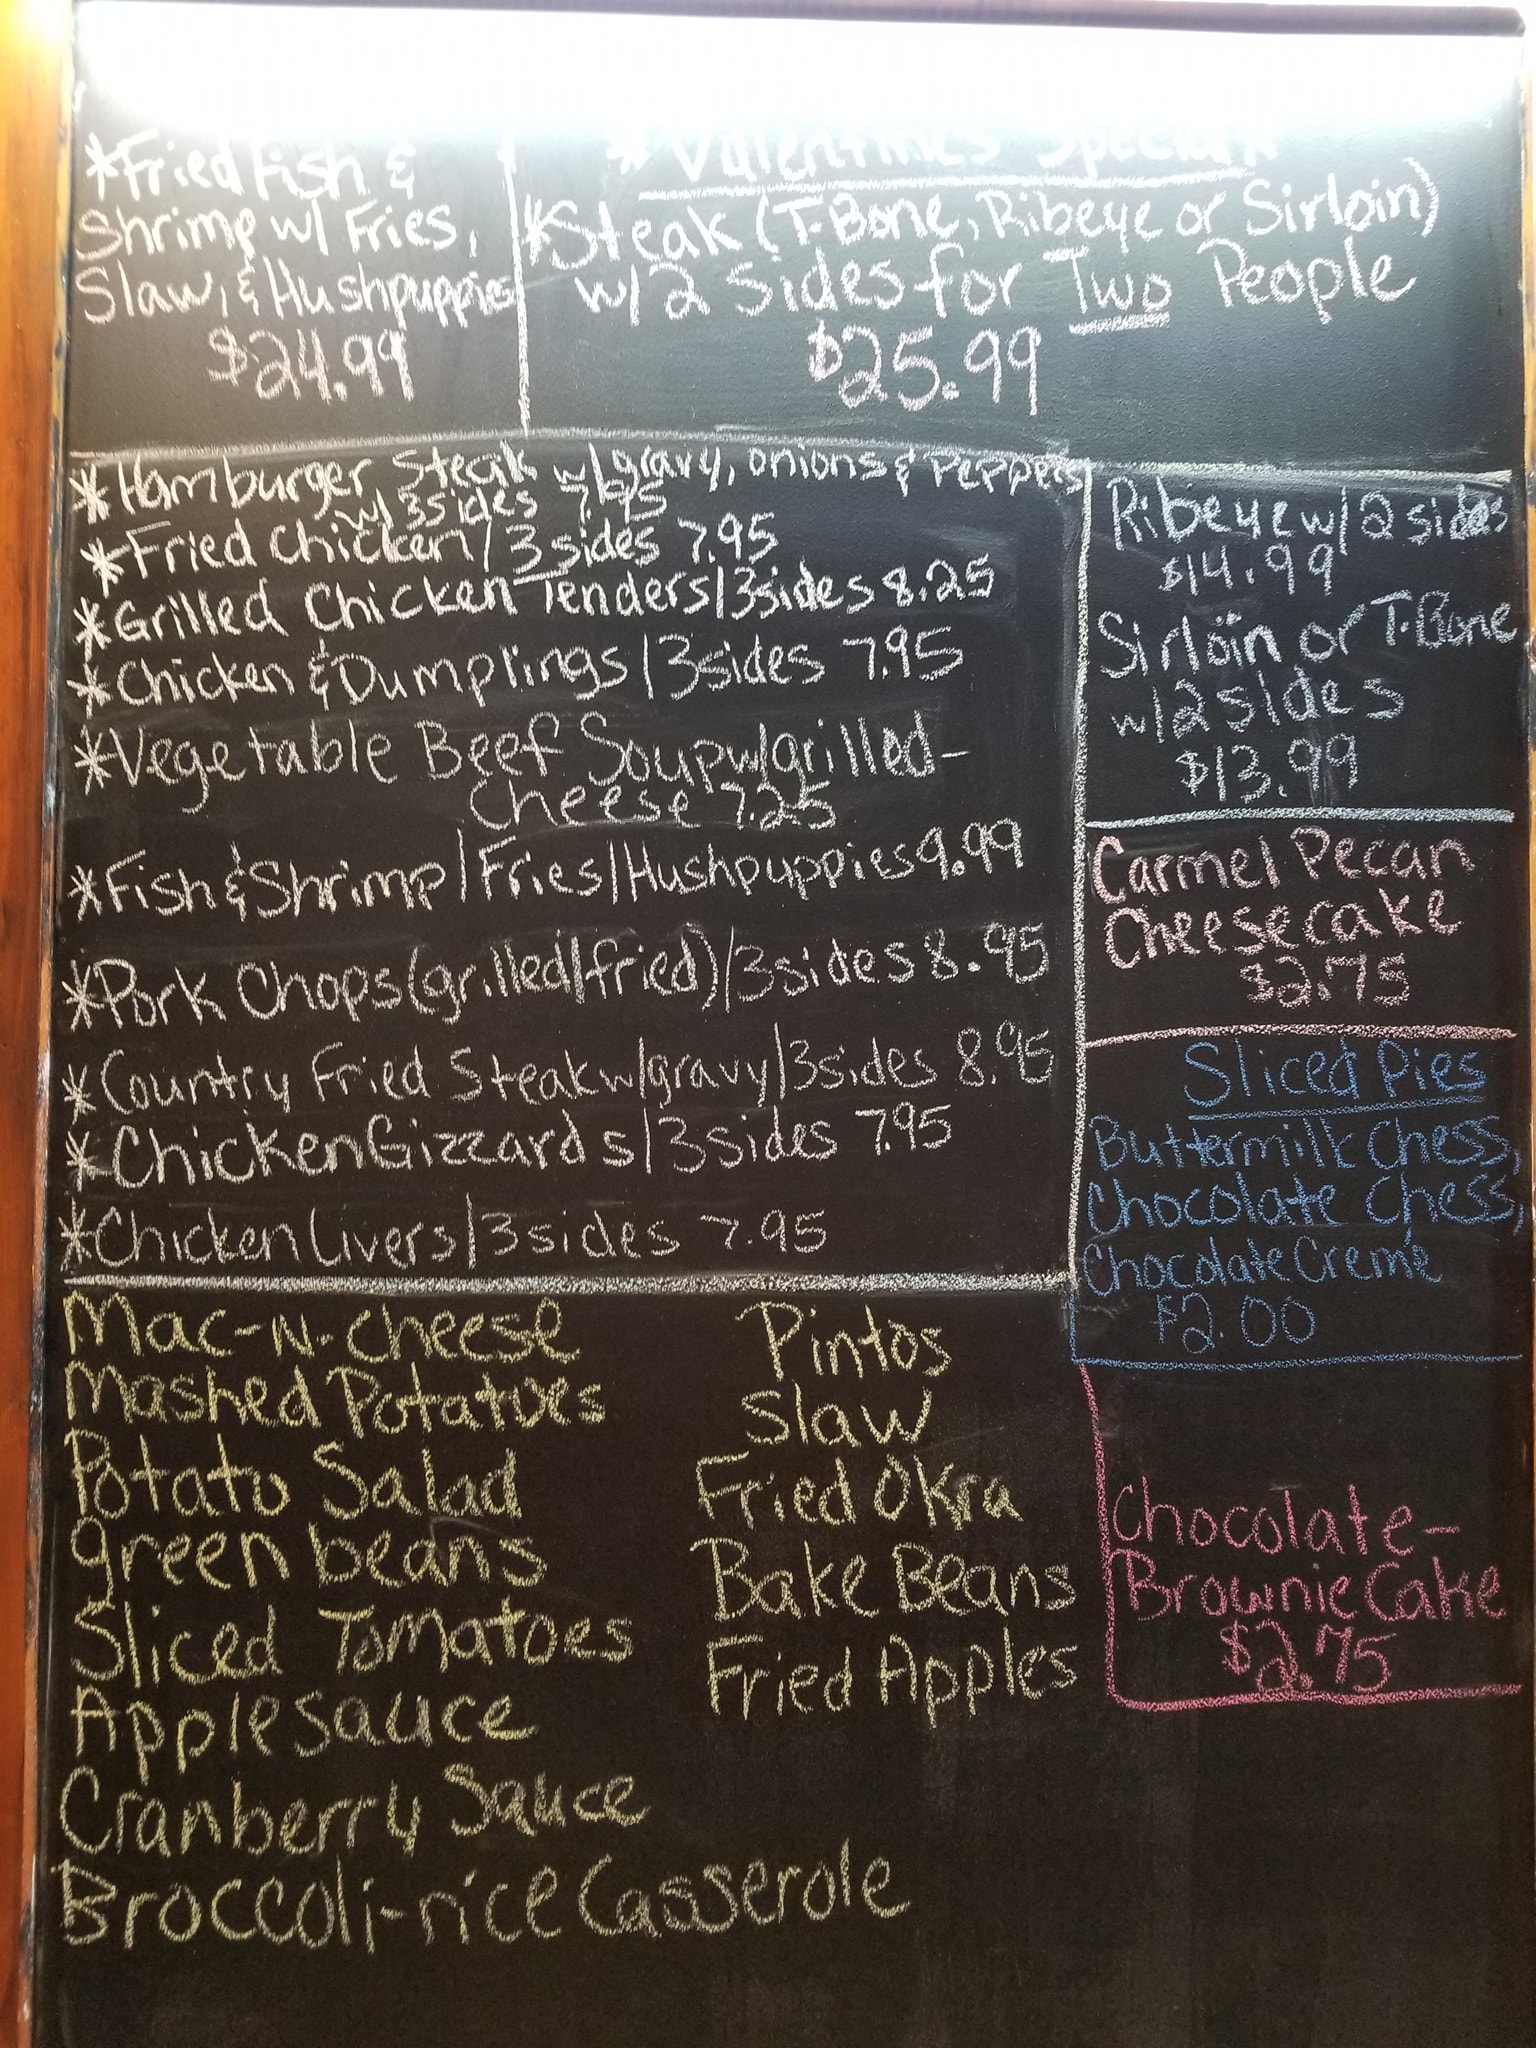 *Fried Fish &
Shrimp w/ Fries,
Slaw, & Hushpuppies
$24.99
* Valentines Special *
*Steak (T-Bone, Ribeye or Sirloin)
w/ 2 sides for Two People
$25.99
*Hamburger Steak w/gravy, onions & Peppers
w/ 3sides 7.95
*Fried Chicken/3 sides 7.95
*Grilled Chicken Tenders/3sides 8.25
*Chicken & Dumplings/3sides 7.95
*Vegetable Beef Soup w/grilled-
Cheese 7.25
*Fish & Shrimp/Fries/Hushpuppies 9.99
*Pork Chops (grilled/fried)/3sides 8.95
*Country Fried Steak w/gravy/3sides 8.95
*Chicken Gizzards/3sides 7.95
*Chicken Livers/3sides 7.95
Ribeye w/ 2 sides
$14.99
Sirloin or T-Bone
w/2 sides
$13.99
Carmel Pecan
Cheesecake
$2.75
Sliced Pies
Buttermilk Chess,
Chocolate Chess,
Chocolate Creme
$2.00
Chocolate-
Brownie Cake
$2.75
Mac-N-Cheese
Mashed Potatoes
Potato Salad
green beans
Sliced Tomatoes
Applesauce
Cranberry Sauce
Broccoli-rice Casserole
Pintos
Slaw
Fried Okra
Bake Beans
Fried Apples